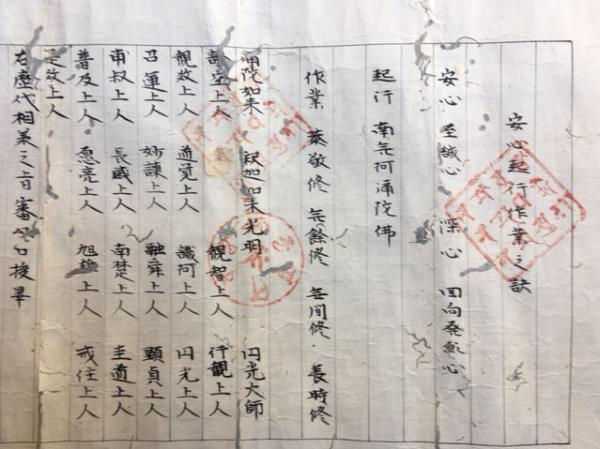 安心起行作業之訣
安心 至誠心 深心 回向発願心
起行 南无阿弥陀佛
作業 恭敬修 无餘修 无間修 長時修
弥陀如来 釈迦如来 光明 円光大師
善空上人 観智上人 行観上人
観教上人 道覚上人 識阿上人 円光上人
召運上人 姉諌上人 融舜上人 顕貞上人
甫叔上人 長感上人 南楚上人 圭道上人
普及上人 恵亮上人 旭 上人 戒住上人
上人
右歴代相承之旨審 口授畢